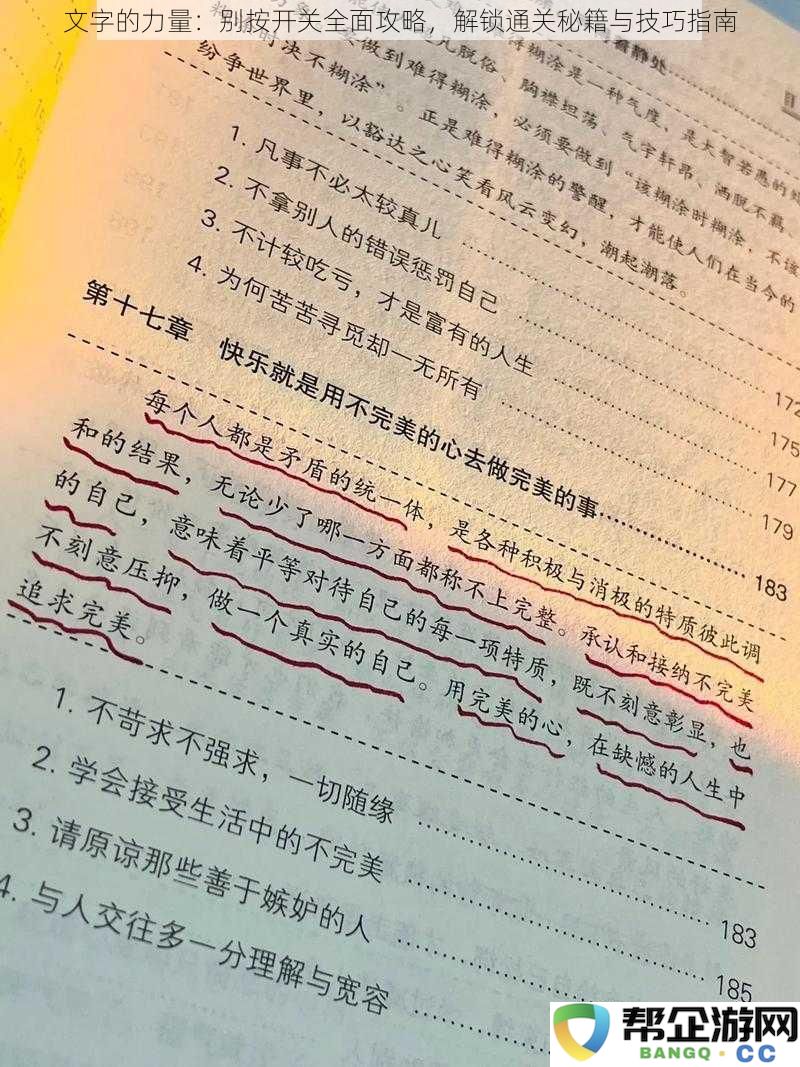 文字的力量：别按开关全面攻略，解锁通关秘籍与技巧指南
看静处
目
得糊涂是一种气度，是大智若愚的处
凡脱俗、胸襟坦荡、气宇轩昂、洒脱不羁、
时决不糊涂”。正是难得糊涂的警醒，才能使人们在当今的
做到难得糊涂，必须要做到“该糊涂时糊涂，不该
纷争世界里，以豁达之心笑看风云变幻，潮起潮落。
1. 凡事不必太较真儿 172
2. 不拿别人的错误惩罚自己 175
3. 不计较吃亏，才是富有的人生 177
4. 为何苦苦寻觅却一无所有 179
第十七章 快乐就是用不完美的心去做完美的事 183
每个人都是矛盾的统一体，是各种积极与消极的特质彼此调
和的结果，无论少了哪一方面都称不上完整。承认和接纳不完美
的自己，意味着平等对待自己的每一项特质，既不刻意彰显，也
不刻意压抑，做一个真实的自己。用完美的心，在缺憾的人生中
追求完美。
1. 不苛求不强求，一切随缘 183
2. 学会接受生活中的不完美 185
3. 请原谅那些善于嫉妒的人
4. 与人交往多一分理解与宽容
帮企游网
BANGQ·CC